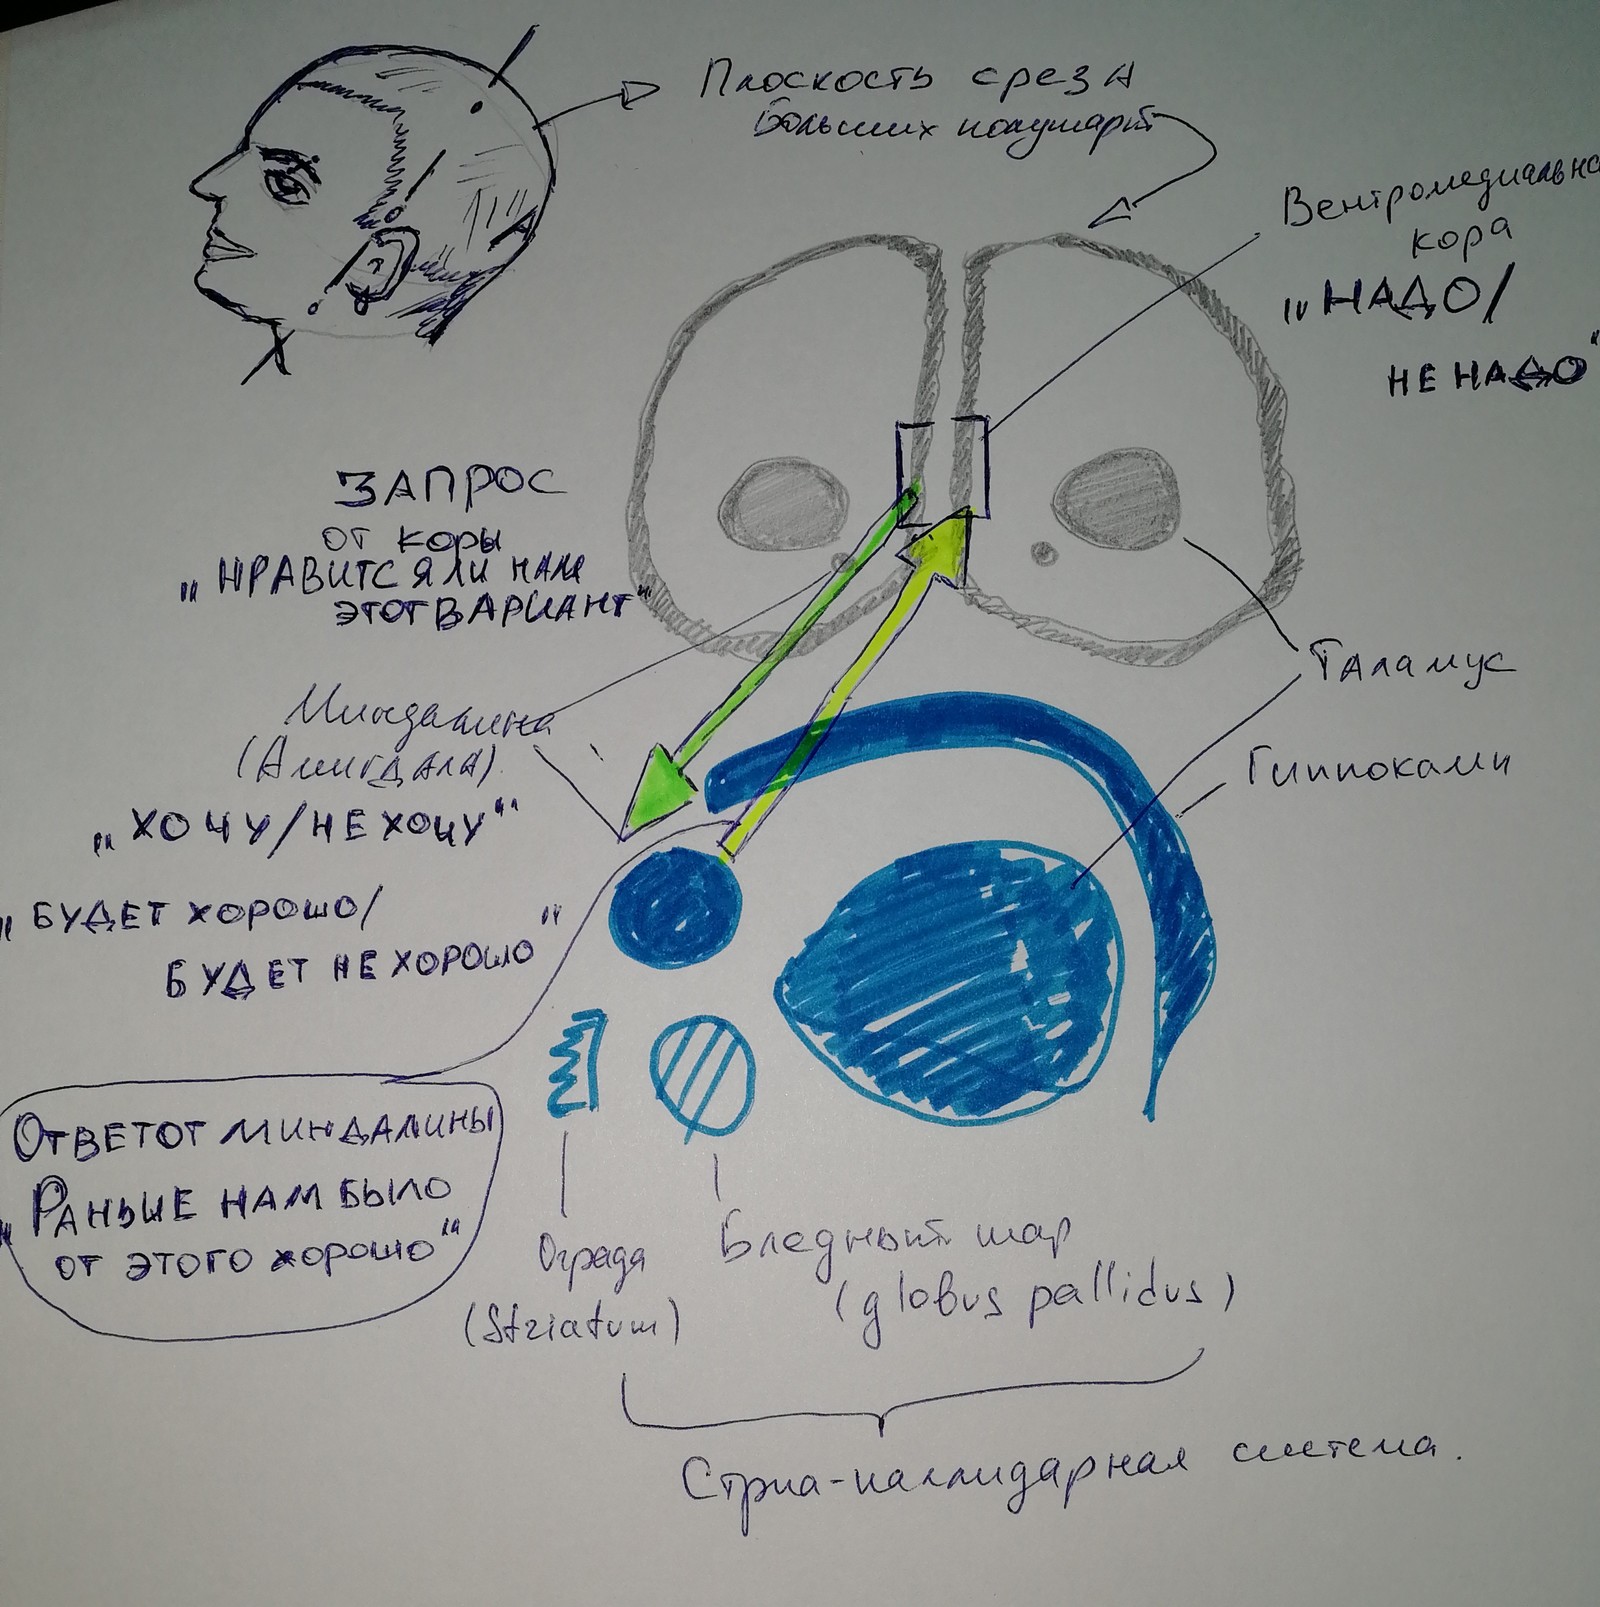 Плоскость среза
больших полушарий
Вентромедиальна
кора
"НАДО/
НЕ НАДО"
ЗАПРОС
ОТ КОРЫ
"НРАВИТСЯ ЛИ НАМ
ЭТОТ ВАРИАНТ"
Миндалина
(Амигдала)
"ХОЧУ/НЕ ХОЧУ"
"БУДЕТ ХОРОШО/
БУДЕТ НЕ ХОРОШО"
Таламус
Гиппокамп
ОТВЕТ ОТ МИНДАЛИНЫ
"РАНЬШЕ НАМ БЫЛО
ОТ ЭТОГО ХОРОШО"
Ограда
(Striatum)
Бледный шар
(globus pallidus)
Стриа-паллидарная система.